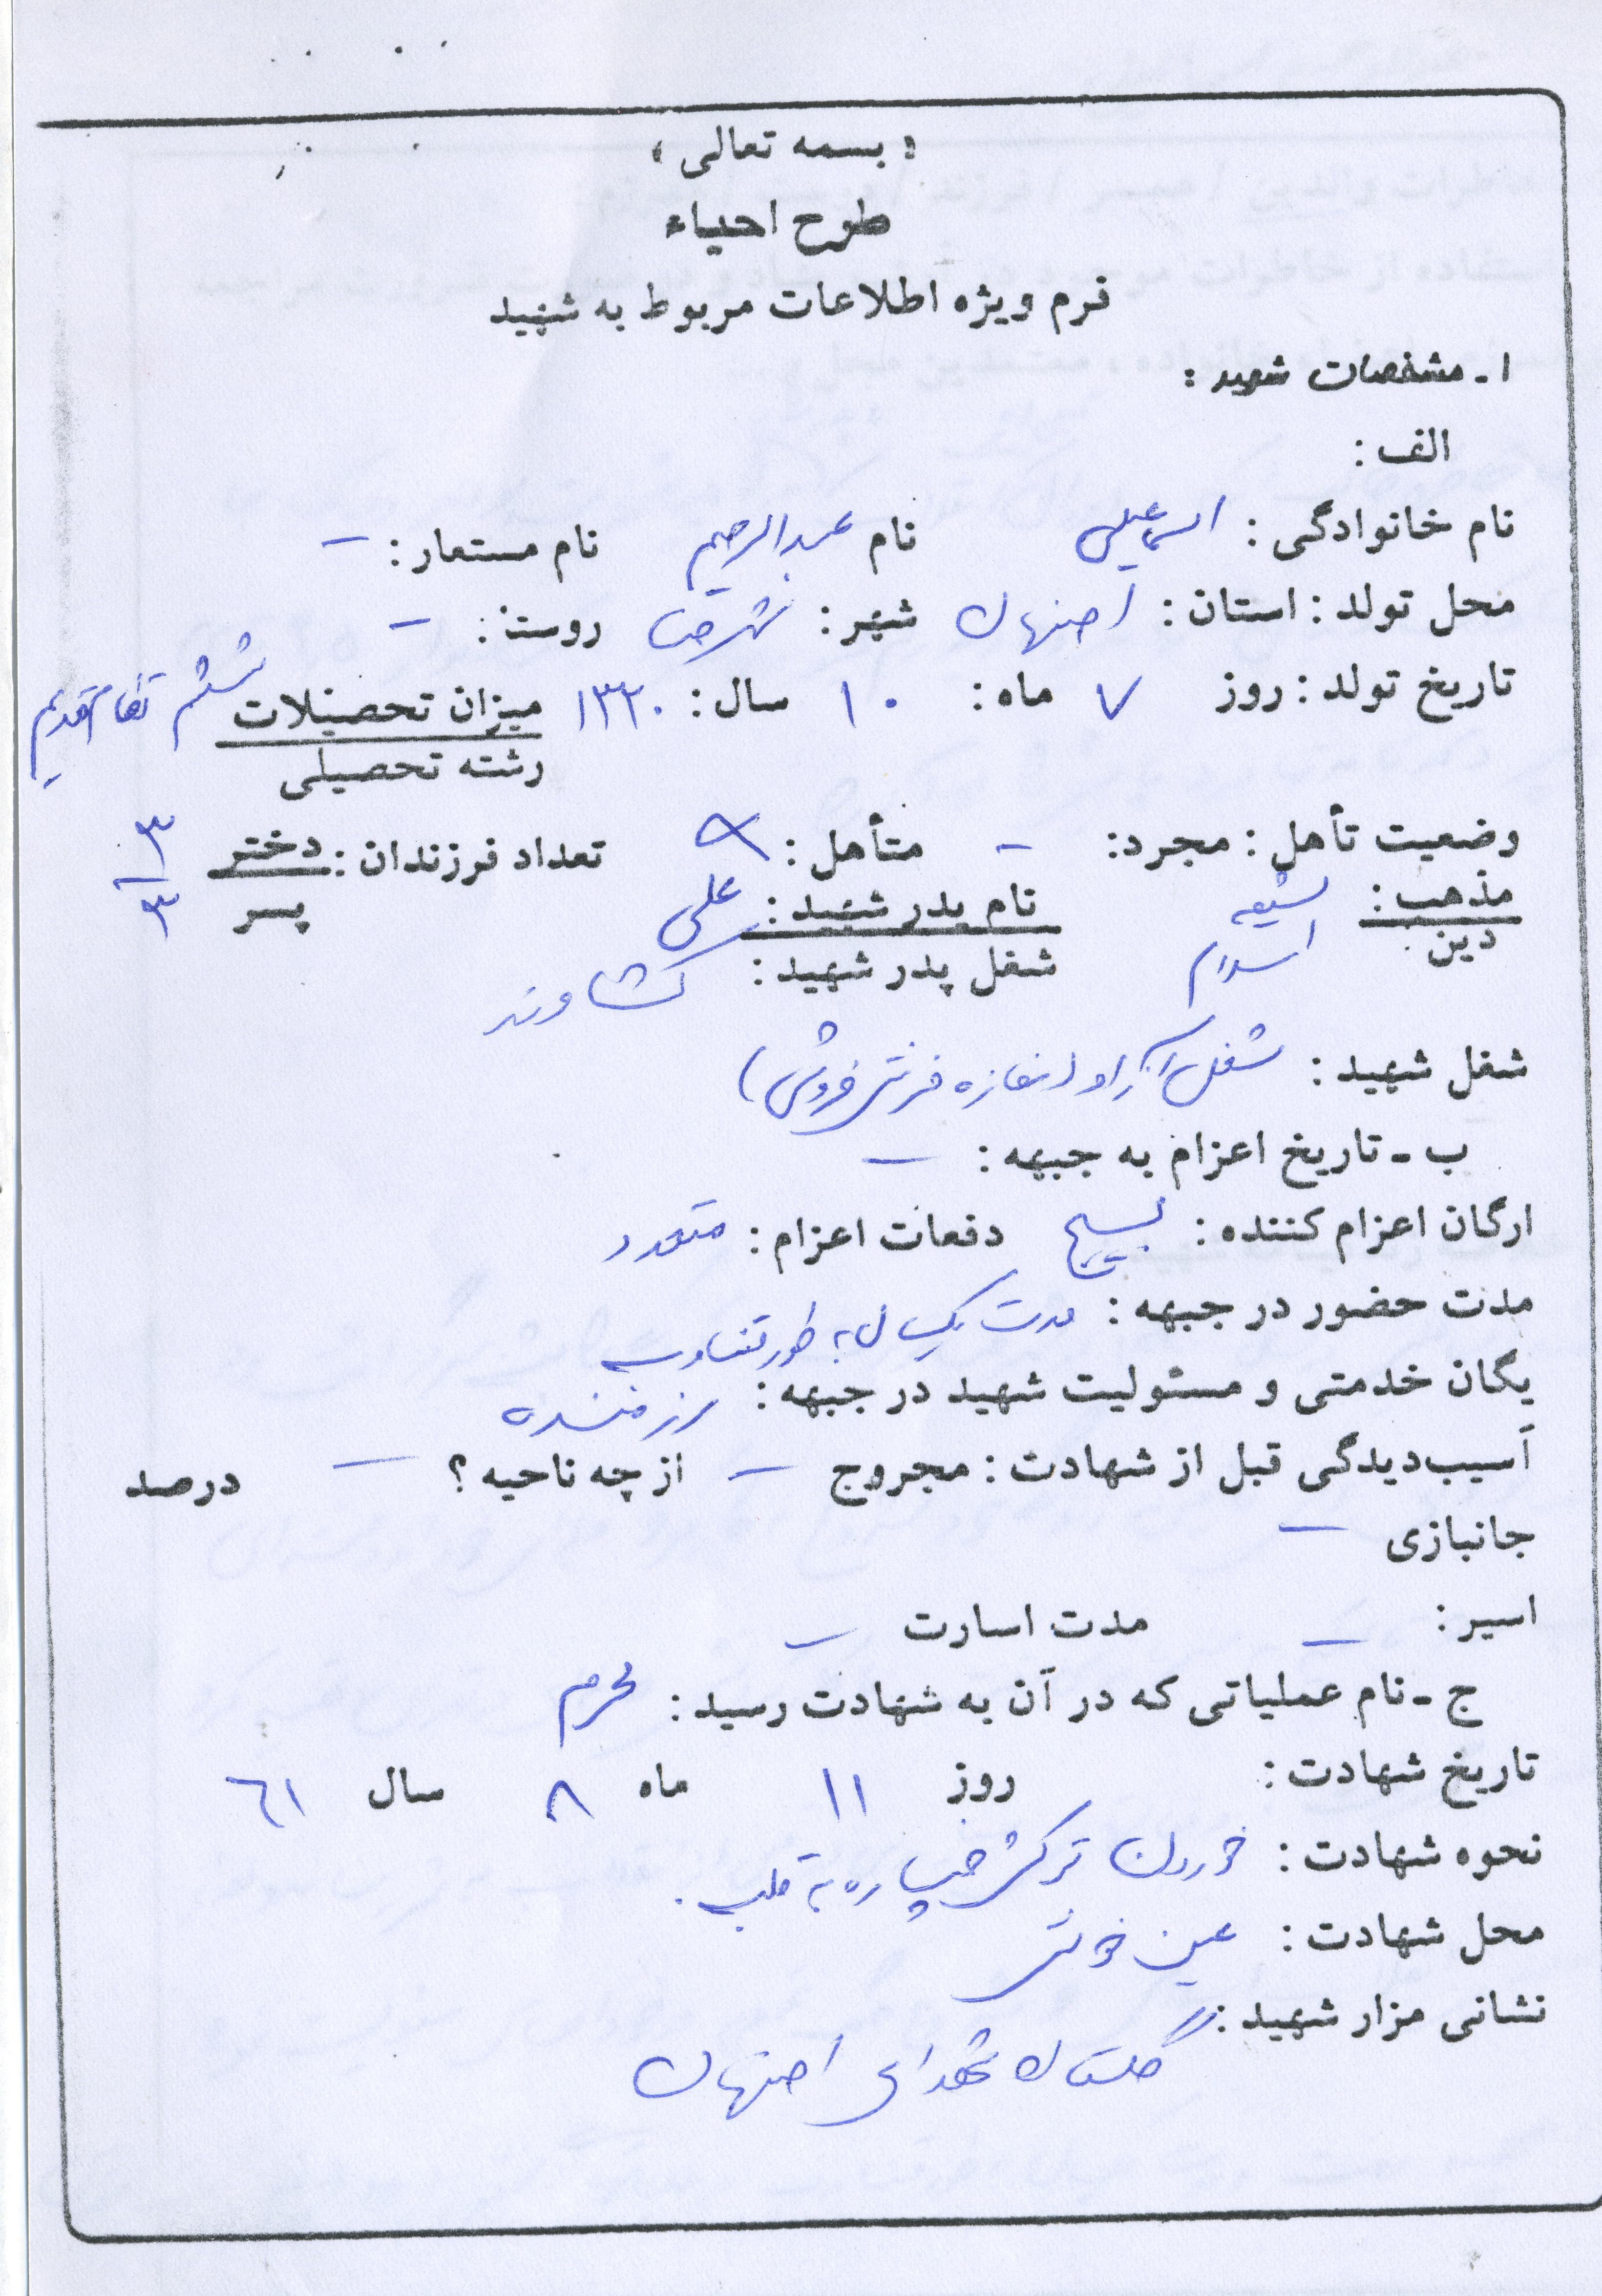 « بسمه تعالی »
طرح احیاء
فرم ویژه اطلاعات مربوط به شهید
۱ ـ مشخصات شهید :
الف :
نام خانوادگی : اسماعیلی نام عبدالرحیم نام مستعار : –
محل تولد : استان : اصفهان شهر : روستا : –
تاریخ تولد : روز ۷ ماه : ۱۰ سال : ۱۳۳۰ میزان تحصیلات ششم نظام قدیم
رشته تحصیلی
وضعیت تأهل : مجرد : – متأهل : تعداد فرزندان : دختر ۳
پسر ۳
مذهب : شیعه نام پدر شهید : علی
دین اسلام شغل پدر شهید : کشاورز
شغل شهید : شغل آزاد (مغازه فرش فروشی)
ب ـ تاریخ اعزام به جبهه : –
ارگان اعزام کننده : بسیج دفعات اعزام : متعدد
مدت حضور در جبهه : مدت یکسال به طور تناوب
یگان خدمتی و مسئولیت شهید در جبهه : رزمنده
آسیب‌دیدگی قبل از شهادت : مجروح – از چه ناحیه ؟ – درصد
جانبازی –
اسیر : – مدت اسارت –
ج ـ نام عملیاتی که در آن به شهادت رسید : محرم
تاریخ شهادت : روز ۱۱ ماه ۸ سال ۶۱
نحوه شهادت : خوردن ترکش خمپاره به قلب.
محل شهادت : عین خوش
نشانی مزار شهید :
گلستان شهدای اصفهان